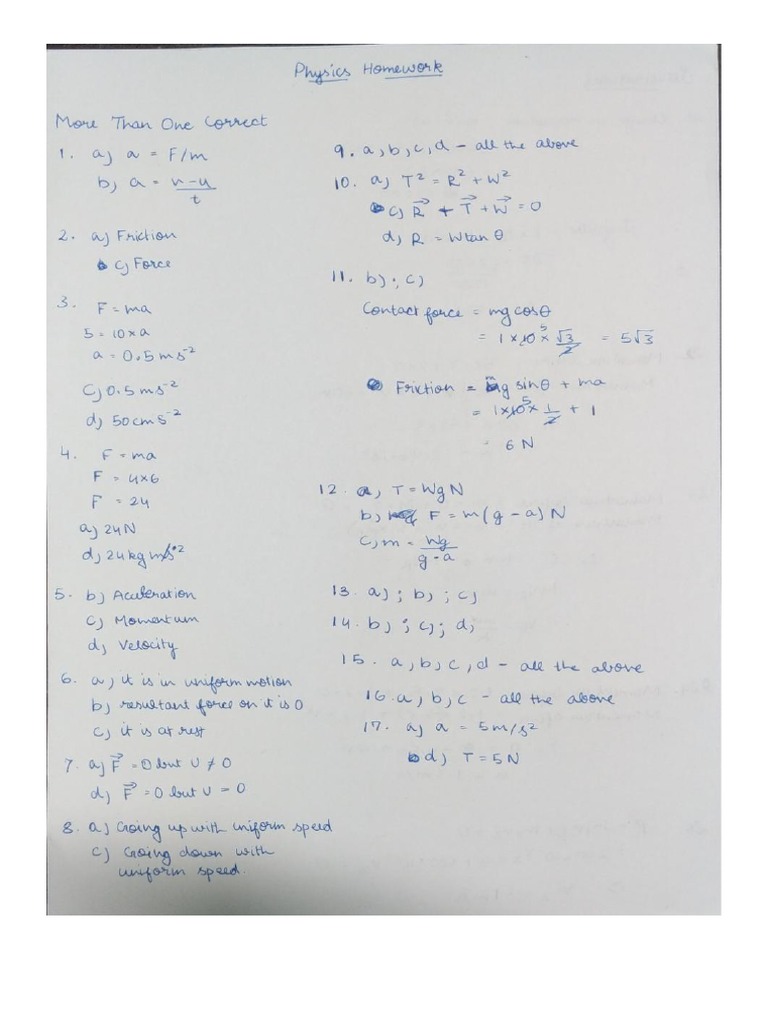 Physics Homework
More Than One Correct
1. a) a = F/m
b) a = v-u/t
2. a) Friction
c) Force
3. F = ma
5 = 10 x a
a = 0.5 ms-2
c) 0.5 ms-2
d) 50 cm s-2
4. F = ma
F = 4x6
F = 24
a) 24N
d) 24 kg m/s2
5. b) Acceleration
c) Momentum
d) Velocity
6. a) it is in uniform motion
b) resultant force on it is 0
c) it is at rest
7. a) F = 0 but U ≠ 0
d) F = 0 but U = 0
8. a) Going up with uniform speed
c) Going down with
uniform speed.
9. a, b, c, d - all the above
10. a) T² = R² + W²
c) R + T + W = 0
d) R = W tan θ
11. b) ; c)
Contact force = mg cosθ
= 1 x 10 5 x √3/2 = 5√3
Friction = mg sinθ + ma
= 1x10 5 x 1/2 + 1
6 N
12. a) T = Wg N
b) F = m(g - a) N
c) m = Wg/g-a
13. a) ; b) ; c)
14. b) ; c) ; d)
15. a, b, c, d - all the above
16. a, b, c - all the above
17. a) a = 5 m/s²
d) T = 5 N